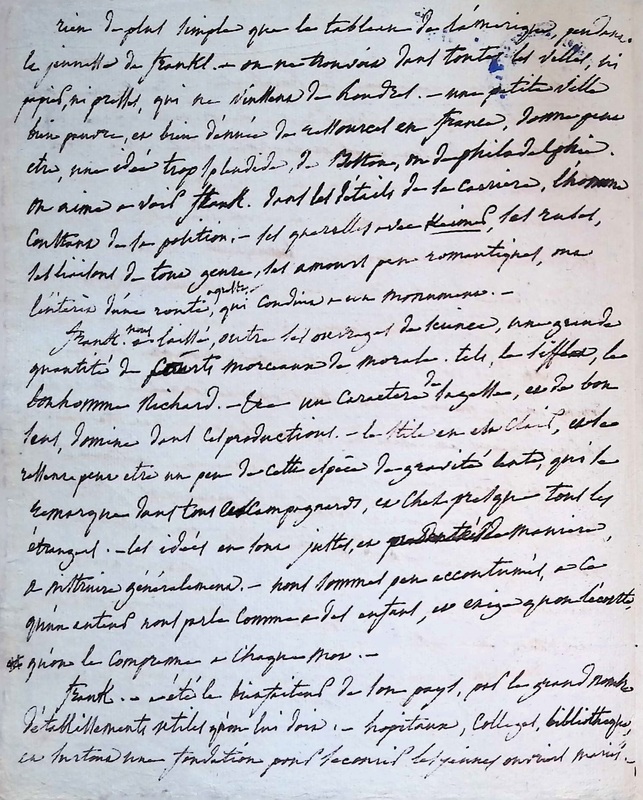 rien de plus simple que le tableau de l'amerique, pendant
la jeunesse de frankl. - on ne trouvoit dans toutes les villes, ni
papes, ni presses, qui ne vinssent de Londres. - une petite ville
bien pauvre, et bien dénuée de ressources en france, donne peut
etre, une idée trop splendide, de Boston, ou de philadelphie.
on aime a voir frank. dans les détails de sa carriere, l'homme
constant de sa position. - ses querelles avec Keimer, ses ruses,
ses liaisons de tout genre, ses amours peu romantiques, ont
l'intérêt d'une route agreste, qui conduit a un monument. -
frank. nous a laissé, outre ses ouvrages de science, une grande
quantité de courts morceaux de morale. tels, le sifflet, le
bonhomme Richard. - un caractere de sagesse, et de bon
sens, domine dans ces productions. - le stile en est clair, et se
ressent peut etre un peu de cette espèce de gravité lente, qui se
remarque dans tous les campagnards, et chez presque tous les
étrangers. - les idées en sont justes, et de maniere,
a instruire généralement. - nous sommes peu accoutumés, a ce
qu'un auteur nous parle comme a des enfans, et exige qu'on l'écoute,
qu'on le comprenne a chaque mot. -
frank. - a été le bienfaiteur de son pays, par le grand nombre
d'établissements utiles qu'on lui doit. - hopitaux, colleges, bibliotheque,
et surtout une fondation pour secourir les jeunes ouvriers mariés. -